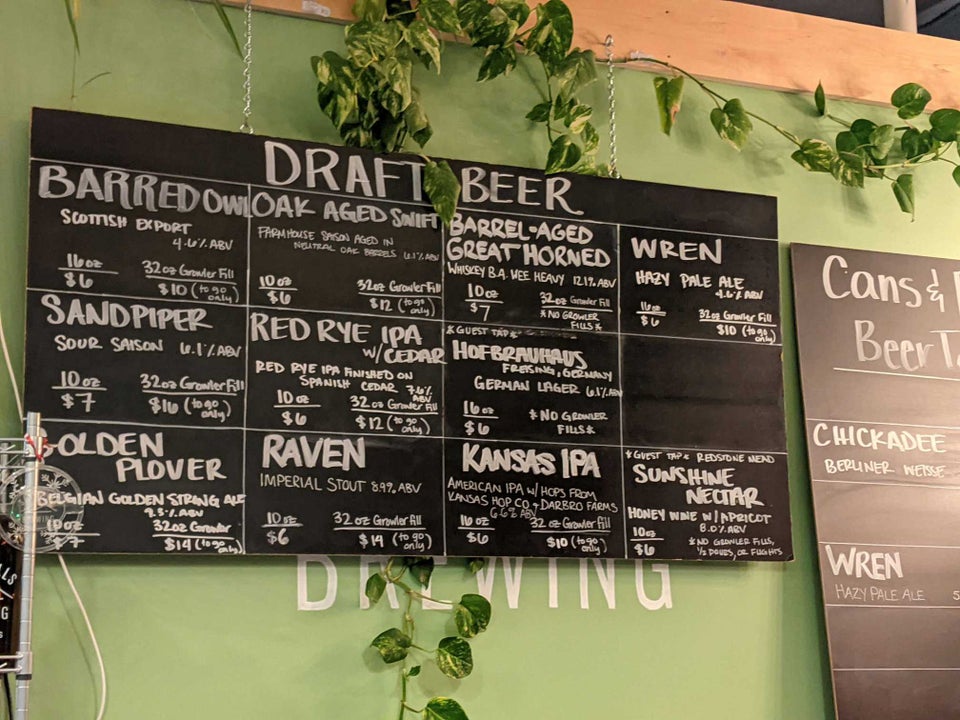 DRAFT BEER
BARRED OWL
SCOTTISH EXPORT
4.6% ABV
16oz
$6
32oz Growler Fill
$10 (to go only)
SANDPIPER
SOUR SAISON 6.1% ABV
10oz
$7
32oz Growler Fill
$16 (to go only)
GOLDEN
PLOVER
BELGIAN GOLDEN STRONG ALE
9.3% ABV
10oz
$7
32oz Growler
$14 (to go only)
OAK AGED SWIFT
FARMHOUSE SAISON AGED IN
NEUTRAL OAK BARRELS 6.1% ABV
10oz
$6
32oz Growler Fill
$12 (to go only)
RED RYE IPA
W/CEDAR
RED RYE IPA FINISHED ON
SPANISH CEDAR 7.6%
ABV
10oz
$6
32oz Growler Fill
$12 (to go only)
RAVEN
IMPERIAL STOUT 8.9% ABV
10oz
$6
32oz Growler Fill
$14 (to go only)
BARREL-AGED
GREAT HORNED
WHISKEY B.A. WEE HEAVY 12.1% ABV
10oz
$7
32oz Growler Fill
*NO GROWLER
FILLS*
*GUEST TAP*
HOFBRAUHAUS
FREISING, GERMANY
GERMAN LAGER 6.1% ABV
16oz
$6
*NO GROWLER
FILLS*
KANSAS IPA
AMERICAN IPA W/HOPS FROM
KANSAS HOP CO & DARBRO FARMS
6.6% ABV
16oz
$6
32oz Growler Fill
$10 (to go only)
WREN
HAZY PALE ALE
4.6% ABV
16oz
$6
32oz Growler Fill
$10 (to go only)
*GUEST TAP* REDSTONE MEAD
SUNSHINE
NECTAR
HONEY WINE W/APRICOT
8.0% ABV
10oz
$6
*NO GROWLER FILLS,
1/2 POURS, OR FLIGHTS
Cans &
Beer
CHICKADEE
BERLINER WEISSE
WREN
HAZY PALE ALE
BREWING